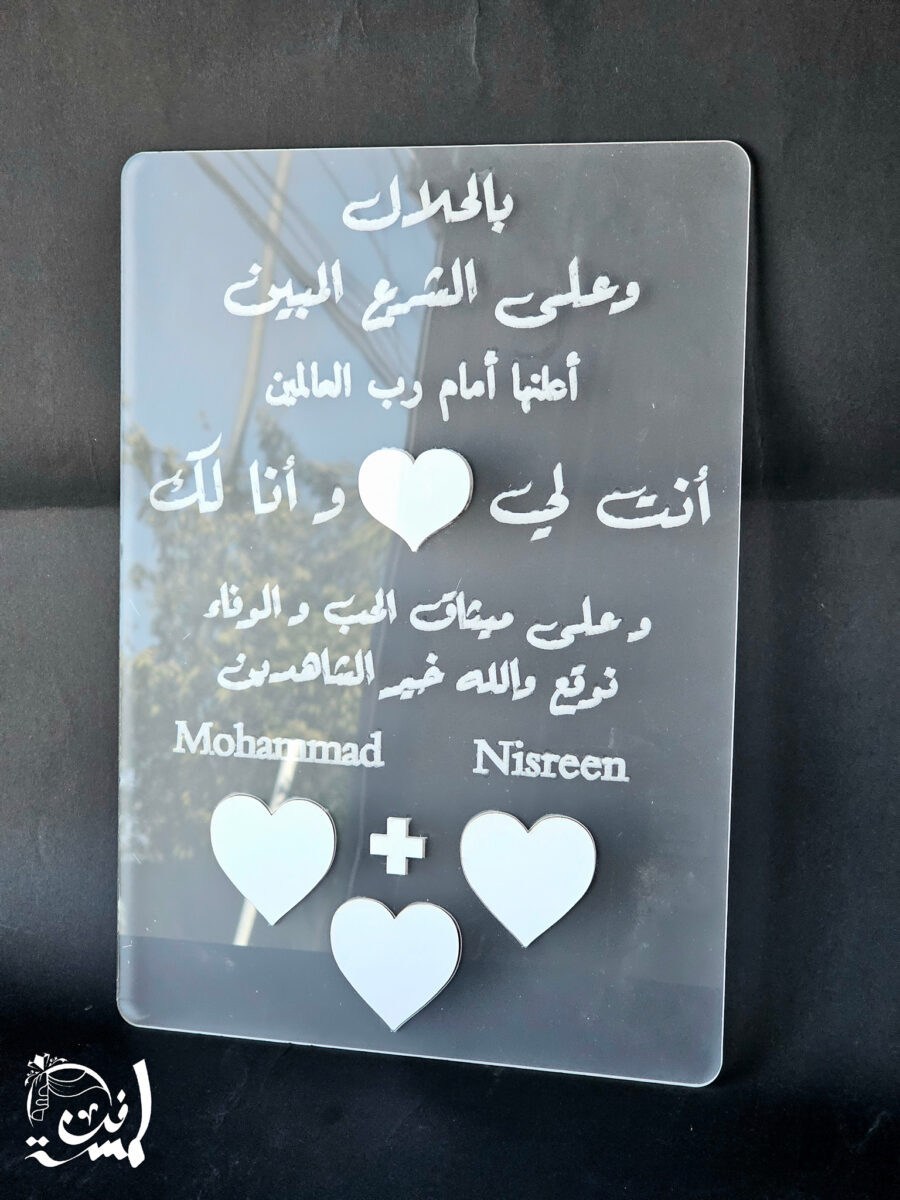 بالحلال
وعلى الشرع المبين
أعلنها أمام رب العالمين
أنت لي و أنا لك
وعلى ميثاق الحب والوفاء
نوقع والله خير الشاهدين
Mohammad Nisreen
+
لمسة فن